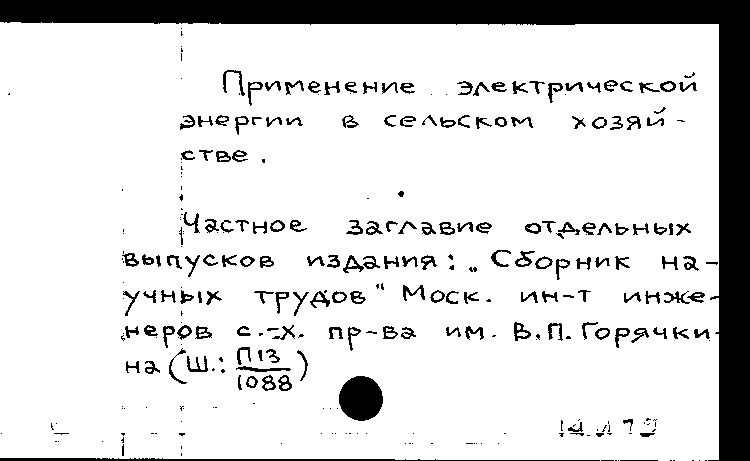 Применение электрической
энергии в сельском хозяй-
стве.
Частное заглавие отдельных
выпусков издания: „Сборник на-
учных трудов" Моск. ин-т инже-
неров с.-х. пр-ва им. В.П. Горячки-
на (Ш.: П13/1088)